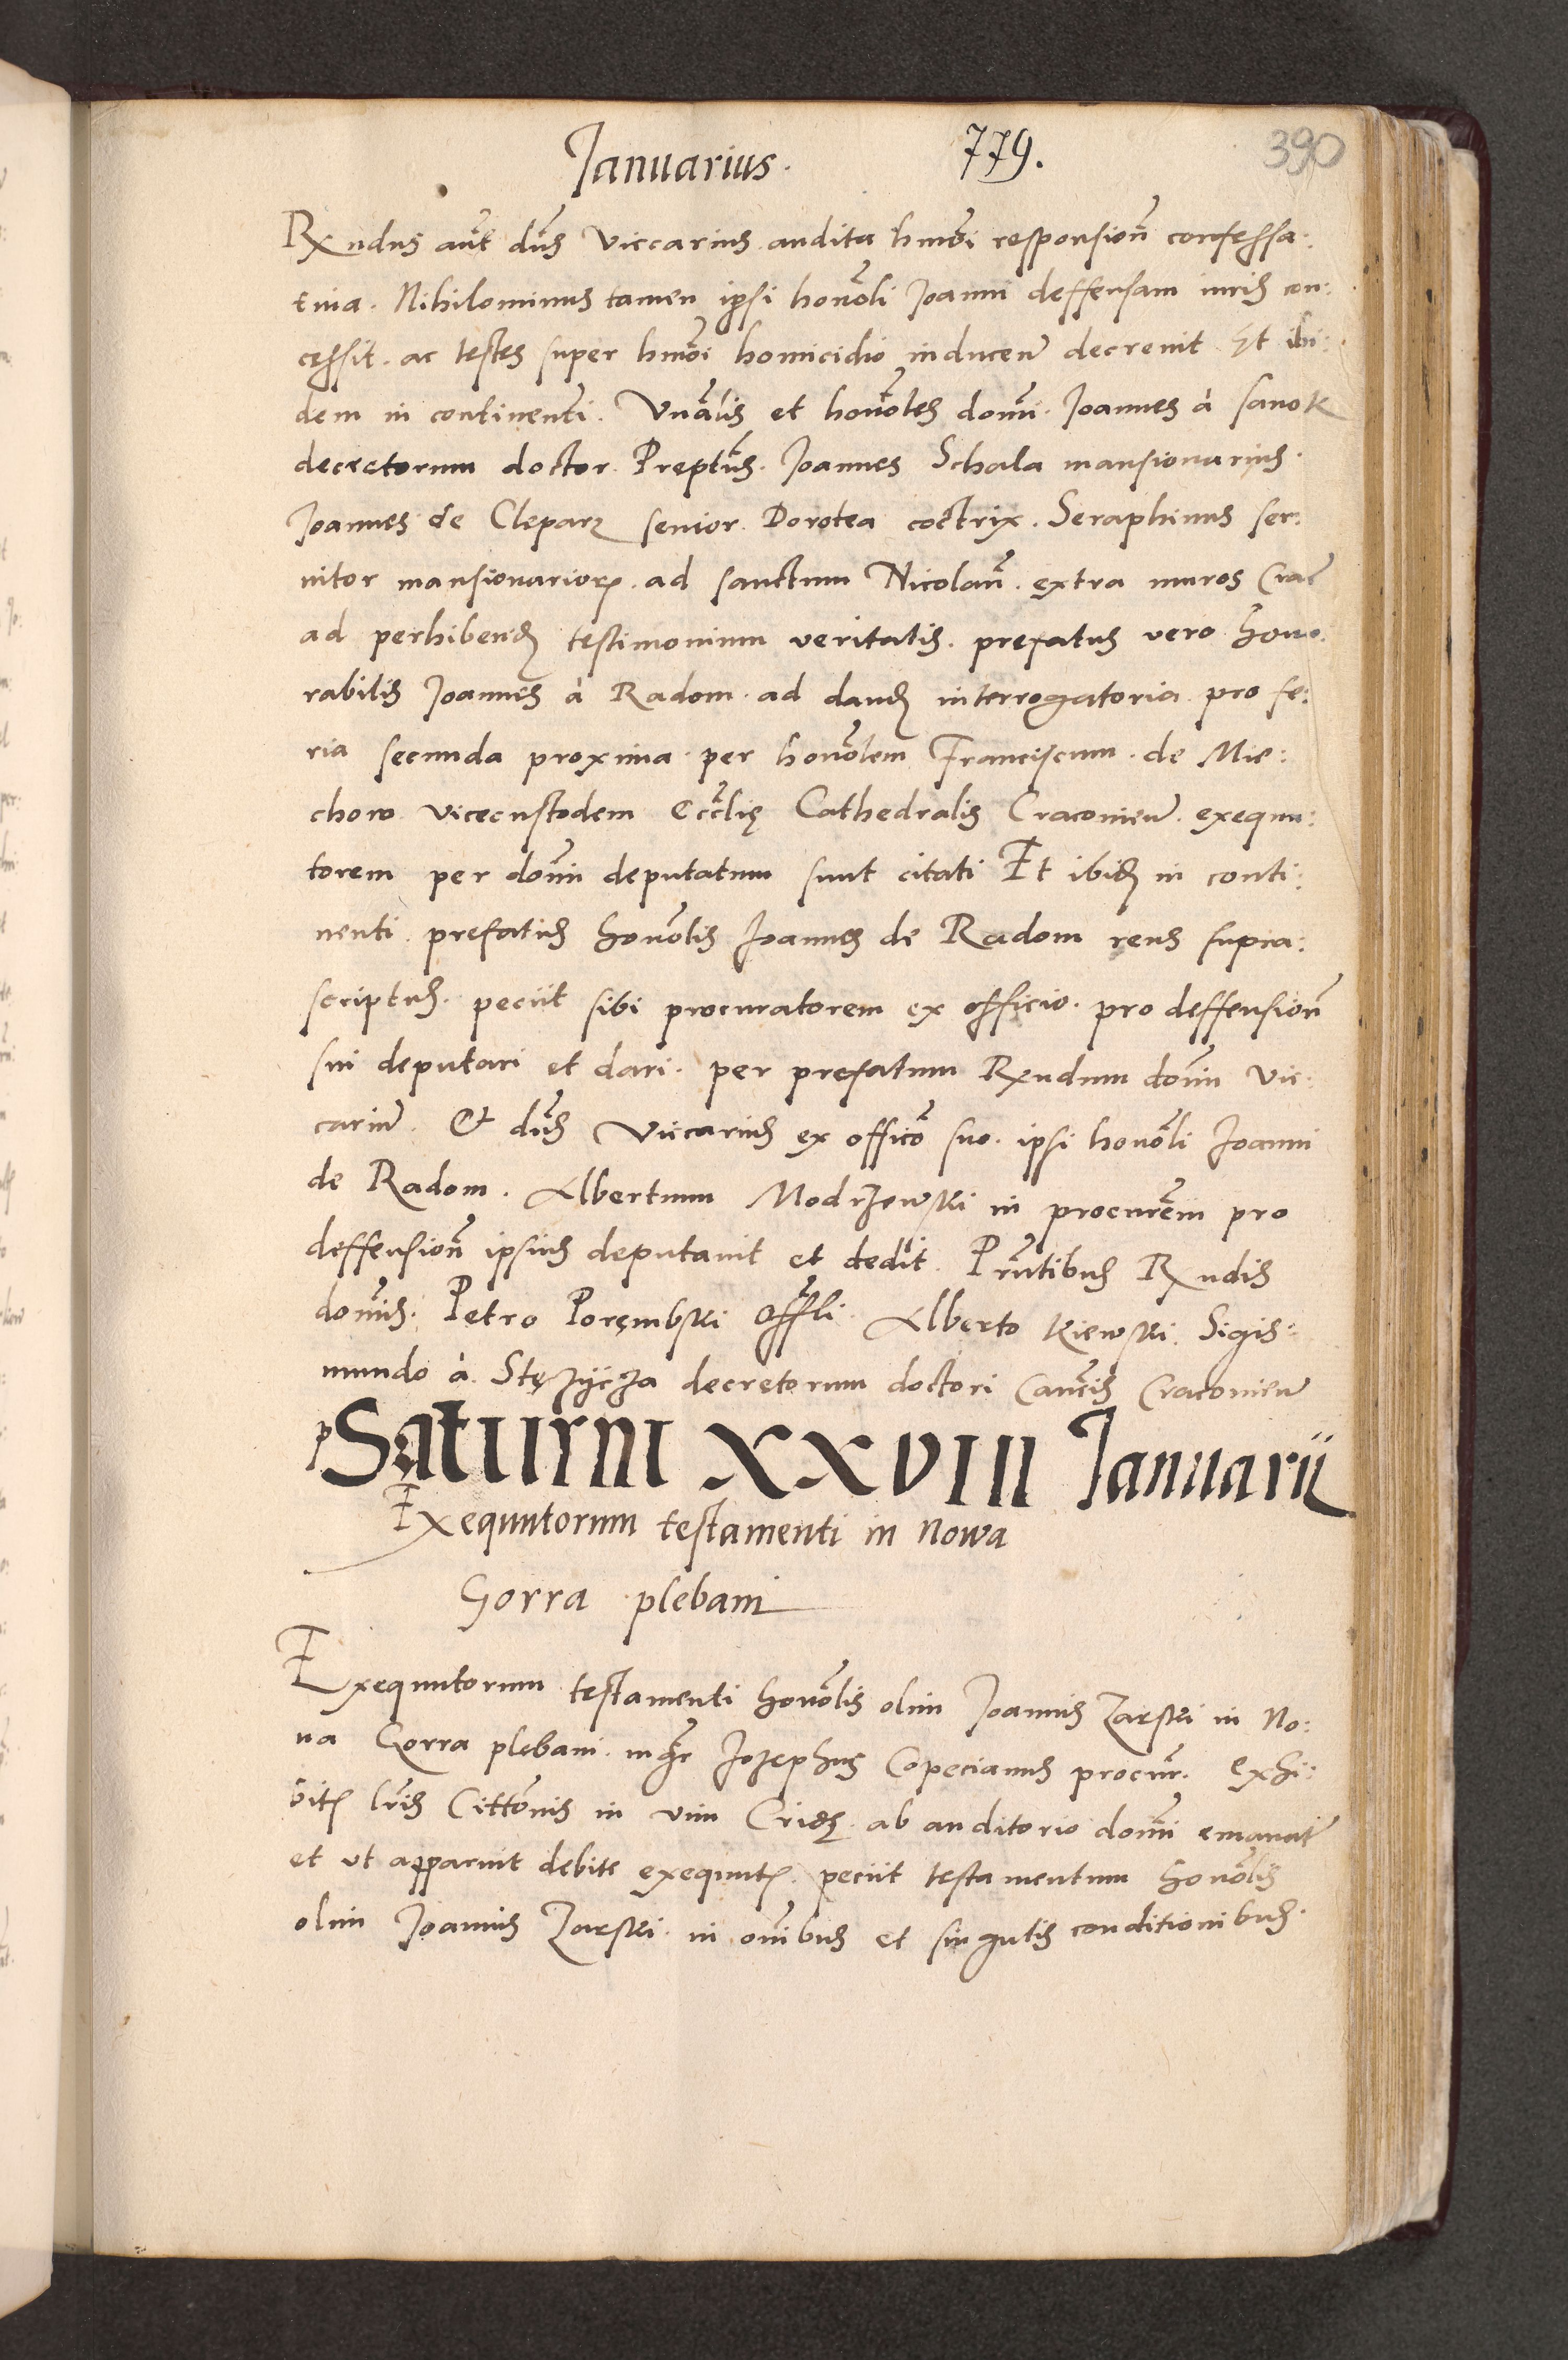 Januarius. 779. 390
Rxndus aut dns Viccarius audita hmoi responsion confessa:
tiua. Nihilominus tamen ipsi honoli Joanni deffensam iuris con:
cessit. ac testes super hmoi homicidio inducen decreuit Et ibi:
dem in continenti. Vnalis et honoles domi. Joannes à Sanok
decretorum doctor. Preptus. Joannes Schala mansionarius.
Joannes de Cleparz senior. Dorotea coctrix. Seraphinus ser:
uitor mansionarior. ad sanctum Nicolau. extra muros Crac
ad perhibend testimonium veritatis. prefatus vero hono:
rabilis Joannes à Radom. ad dand interrogatoria pro fe:
ria secunda proxima. per honolem Franciscum. de Mie:
chow vicecustodem Ecclię Cathedralis Cracouien. exequu:
torem per domi deputatum sunt citati Et ibid in conti:
nenti. prefatus honolis Joannes de Radom reus supra:
scriptus. peciit sibi procuratorem ex officio. pro deffension
sui deputari et dari. per prefatum Rxndum domi Vic:
carium. Et dns Viccarius ex offico suo. ipsi honoli Joanni
de Radom. Albertum Modrzewski in procurem pro
deffension ipsius deputauit et dedit. Pntibus Rxndis
domis. Petro Porębski offli. Alberto Kiewski. Sigis:
mundo à Stężijcza decretorum doctori Cancis Cracouien
p Saturni XXVIII Januarii
Exequutorum testamenti in Nowa
Gorra plebani
Exequutorum testamenti honolis olim Joannis Zarski in No:
ua Gorra plebani. mgr Jozephus Copecianus procur. Exhi:
bit lris Cittonis in vim Crid. ab auditorio domi emanat
et vt apparuit debite exequut. peciit testamentum honolis
olim Joannis Zarski. in omibus et singulis conditionibus.